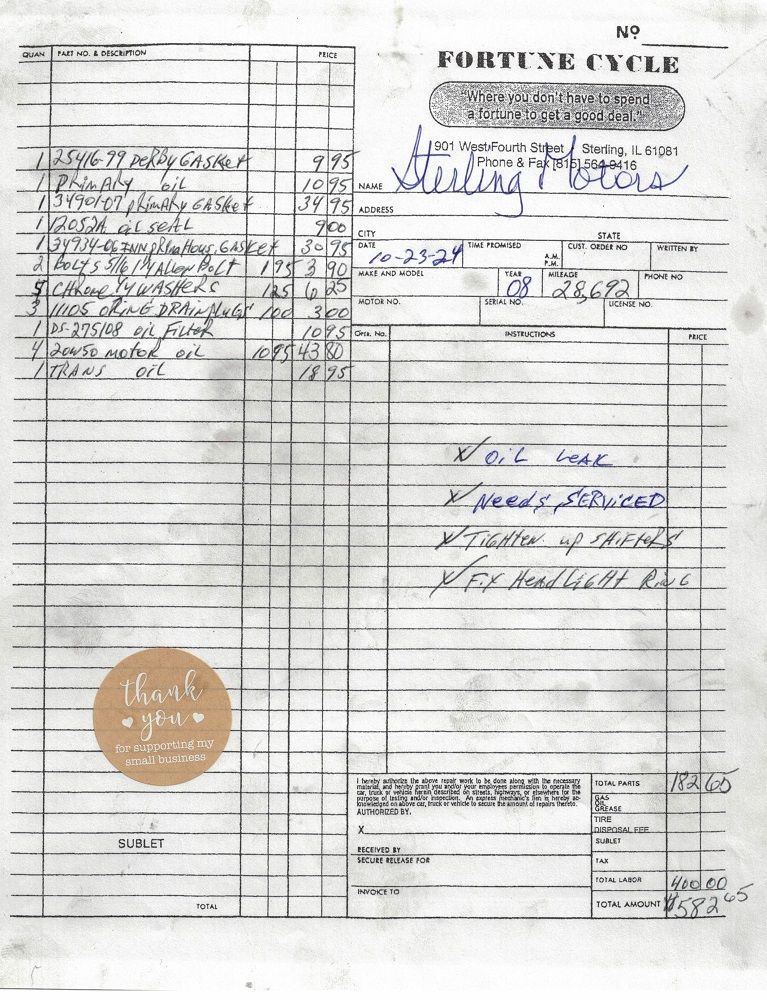 Nº
FORTUNE CYCLE
"Where you don't have to spend
a fortune to get a good deal."
901 West Fourth Street / Sterling, IL 61081
Phone & Fax [815] 564-9416
QUAN PART NO. & DESCRIPTION PRICE
1 25416-99 Derby Gasket 9 95
1 Primary oil 10 95
1 34901-07 Primary Gasket 34 95
1 12052A oil seal 9 00
1 34934-06 INN Prim Hous. Gasket 30 95
2 Bolts 5/16 1¼ Allen Bolt 1 95 3 90
5 Chrome ¼ Washers 1 25 6 25
3 11105 O Ring Drain Plugs 1 00 3 00
1 DS-275108 oil Filter 10 95
4 20w50 motor oil 10 95 43 80
1 TRANS oil 18 95
NAME Sterling Motors
ADDRESS
CITY STATE
DATE 10-23-24 TIME PROMISED A.M. P.M. CUST. ORDER NO WRITTEN BY
MAKE AND MODEL YEAR 08 MILEAGE 28,692 PHONE NO
MOTOR NO. SERIAL NO. LICENSE NO.
Oper. No. INSTRUCTIONS PRICE
X OiL LeAK
X Needs SERViCED
X TiGHTen up SHiFTeRS
X Fix HeadLiGHt RinG
thank
you
for supporting my
small business
SUBLET
TOTAL
I hereby authorize the above repair work to be done along with the necessary
material, and hereby grant you and/or your employees permission to operate the
car, truck or vehicle herein described on streets, highways, or elsewhere for the
purpose of testing and/or inspection. An express mechanic's lien is hereby ac-
knowledged on above car, truck or vehicle to secure the amount of repairs thereto.
AUTHORIZED BY.
X
RECEIVED BY
SECURE RELEASE FOR
INVOICE TO
TOTAL PARTS 182 65
GAS
OIL
GREASE
TIRE
DISPOSAL FEE
SUBLET
TAX
TOTAL LABOR 400 00
TOTAL AMOUNT $582 65